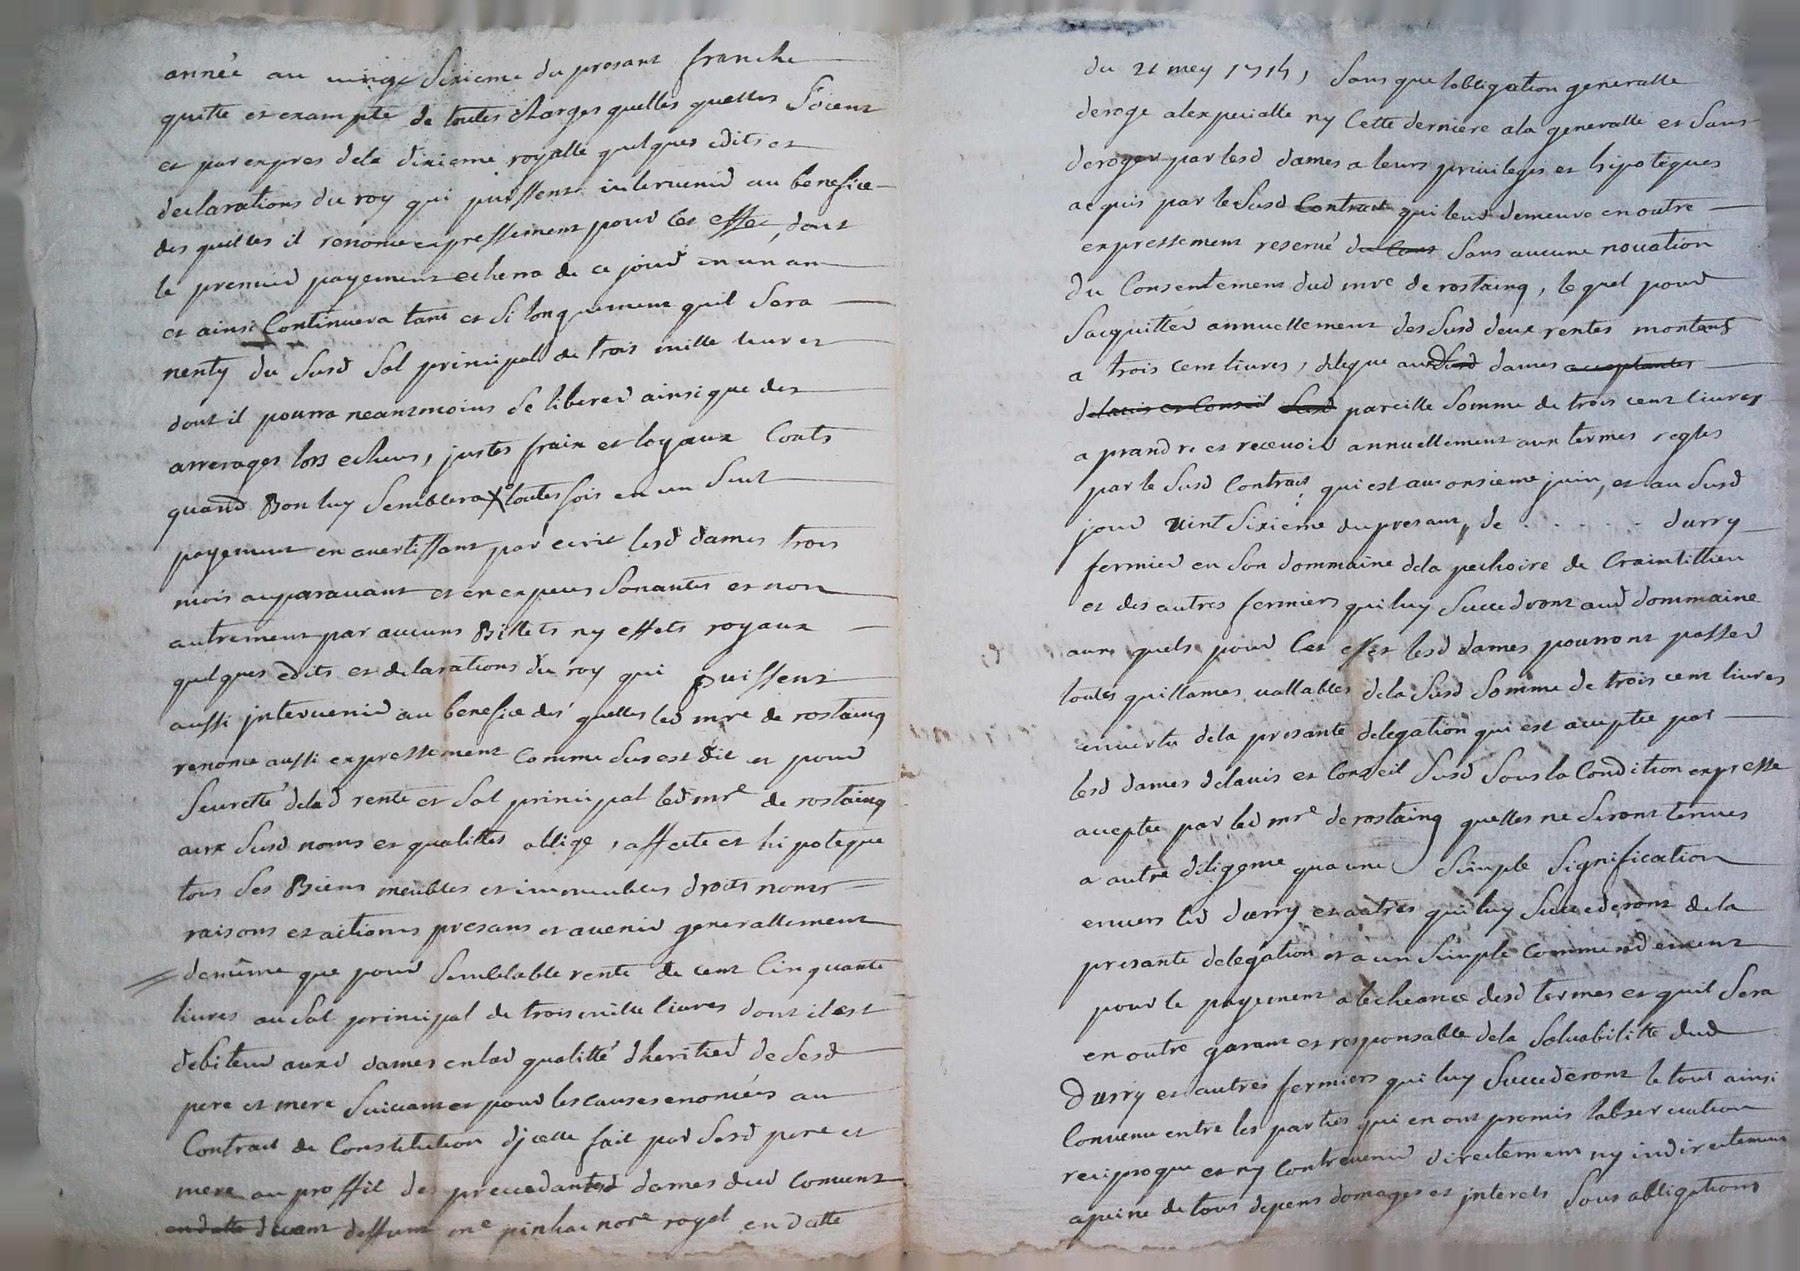 année au vingt sixieme du presant franche
quitte et exampte de toutes charges quelles quelles soient
et par expres dela dixieme royalle quelques edits et
declarations du roy qui puissent intervenir au benefice
des quelles il renonce expressement pour cet effet, dont
le premier payement echerra de ce jour en un an
et ainsi continuera tant et si longuement quil sera
nenty du susd sol principal de trois mille livres
dont il pourra neantmoins se liberer ainsi que des
arrerages lors echeus, justes fraix et loyaux couts
quand Bon luy semblera toutes fois en un seul
payement en avertissant par ecrit lesd dames trois
mois auparavant et en expeces sonantes et non
autrement par aucuns Billets ny effets royaux
quelques edits et declarations du roy qui puissent
aussi jntervenir au benefice des quelles led mre de rostaing
renonce aussi expressement comme sus est dit et pour
seureté delad rente et sol principal led mre de rostaing
aux susd noms et qualittes oblige, affecte et hipoteque
tous ses Biens meubles et immeubles droits noms
raisons et actions presans et avenir generallement
demême que pour semblable rente de cent cinquante
livres au sol principal de trois mille livres dont il est
debiteur auxd dames en lad qualitté dheritier de sesd
pere et mere suivant et pour les causes enoncées au
contract de constitution djcelle fait par sesd pere et
mere au proffit des precedantes dames dud couvent
en datte devant deffunt me pinhac nore royal en datte
du 21 mey 1714, sans que lobligation generalle
deroge alexpecialle ny cette derniere ala generalle et sans
deroger par lesd dames a leurs privileges et hipoteques
acquis par le susd contract qui leur demeure en outre
expressement reservé sans aucune novation
du consentement dud mre de rostaing, lequel pour
sacquitter annuellement des susd deux rentes montans
a trois cent livres, delegue auxd dames acceptantes
delavis et conseil susd pareille somme de trois cent livres
a prandre et recevoir annuellement aux termes regles
par le susd contract qui est au onsieme juin, et au susd
jour vint sixieme du presant, de . . . . . durry
fermier en son dommaine dela pechoire de Craintillieu
et des autres fermiers qui luy succedront aud dommaine
aux quels pour cet effet lesd dames pourront passer
toutes quittances vallables dela susd somme de trois cent livres
en vertu dela presante delegation qui est acceptée par
lesd dames delavis et conseil susd sous la condition expresse
acceptée par led mre de rostaing quelles ne seront tenues
a autre diligence qua une simple signification
envers led durry et autres qui luy succederont de la
presante delegation et a un simple commendement
pour le payement a lecheance desd termes et quil sera
en outre garant et responsable dela solvabilitte dud
durry et autres fermiers qui luy succederont le tout ainsi
convenu entre les parties qui en ont promis lobservation
reciproque et ny contrevenir directement ny indirectement
a peine de tous depens domages et jnterets sous obligations